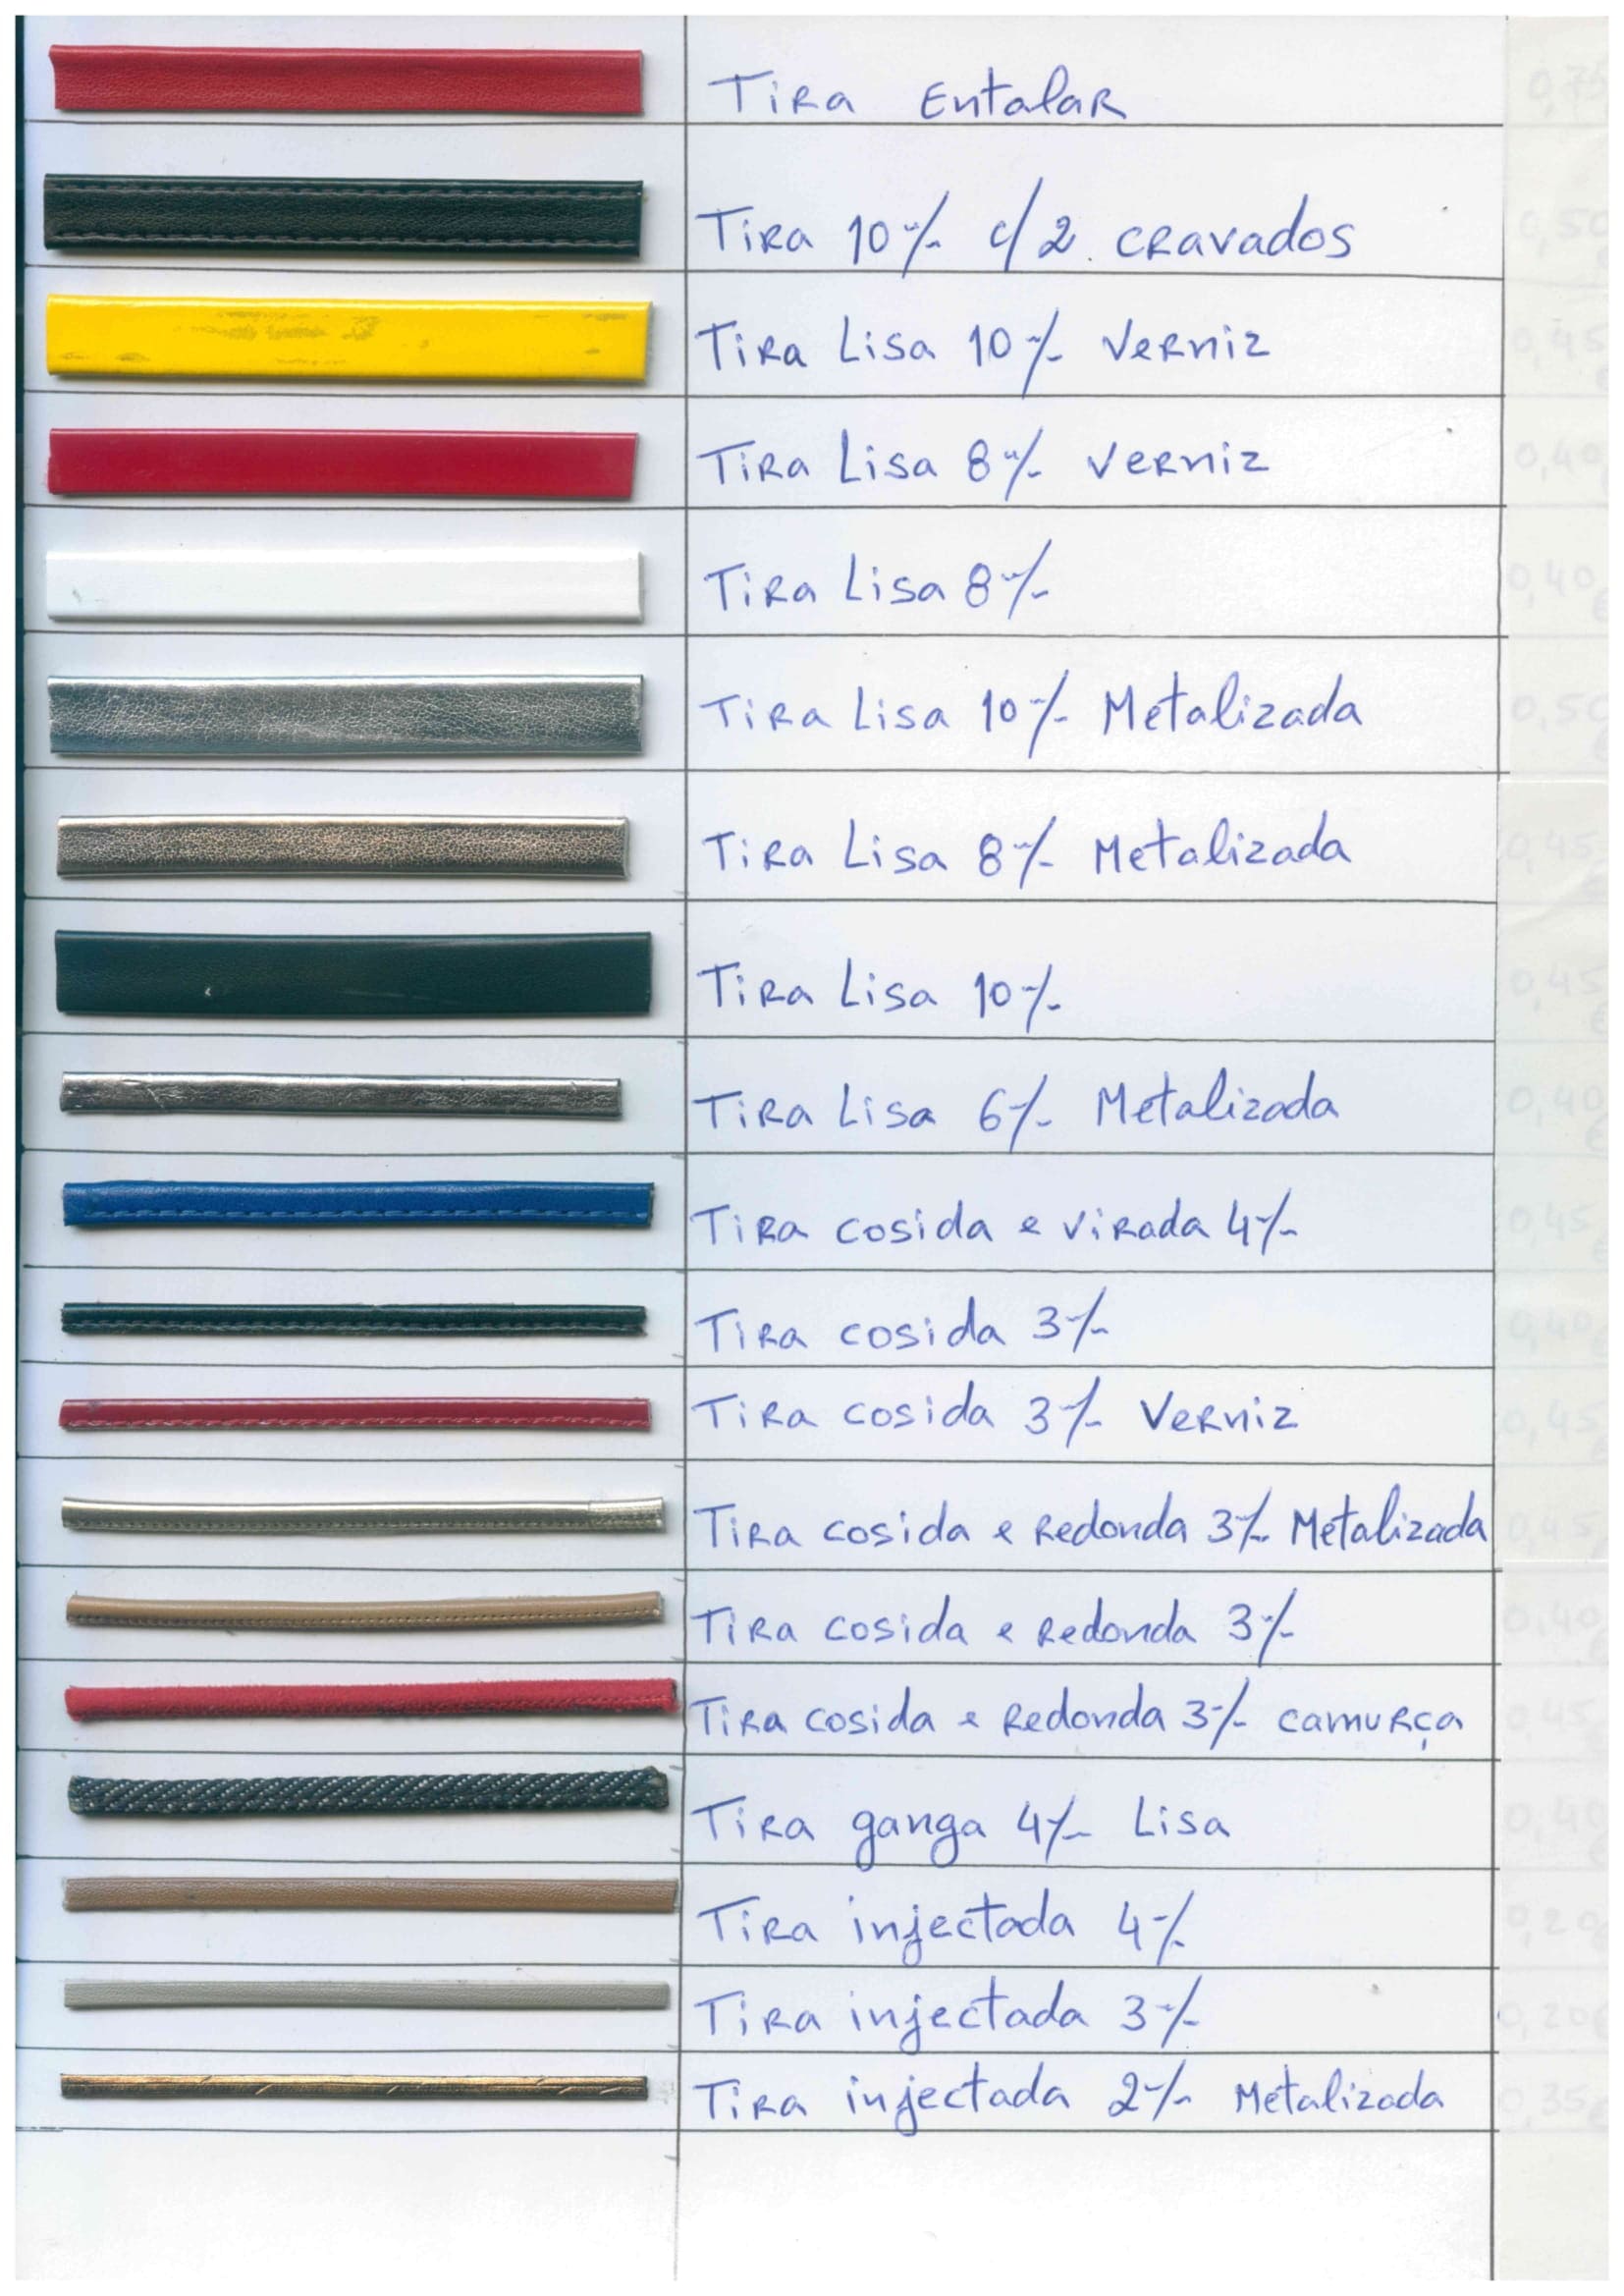 Tira Entalar 0,75
Tira 10 m/m c/2 cravados 0,50
Tira Lisa 10 m/m Verniz 0,45
Tira Lisa 8 m/m Verniz 0,40
Tira Lisa 8 m/m 0,40 €
Tira Lisa 10 m/m Metalizada 0,50
Tira Lisa 8 m/m Metalizada 0,45 €
Tira Lisa 10 m/m 0,45 €
Tira Lisa 6 m/m Metalizada 0,40 €
Tira cosida e virada 4 m/m 0,45 €
Tira cosida 3 m/m 0,40 €
Tira cosida 3 m/m Verniz 0,45 €
Tira cosida e Redonda 3 m/m Metalizada 0,45
Tira cosida e Redonda 3 m/m 0,40 €
Tira cosida e Redonda 3 m/m camurça 0,45 €
Tira ganga 4 m/m Lisa 0,40 €
Tira injectada 4 m/m 0,20
Tira injectada 3 m/m 0,20€
Tira injectada 2 m/m Metalizada 0,35€